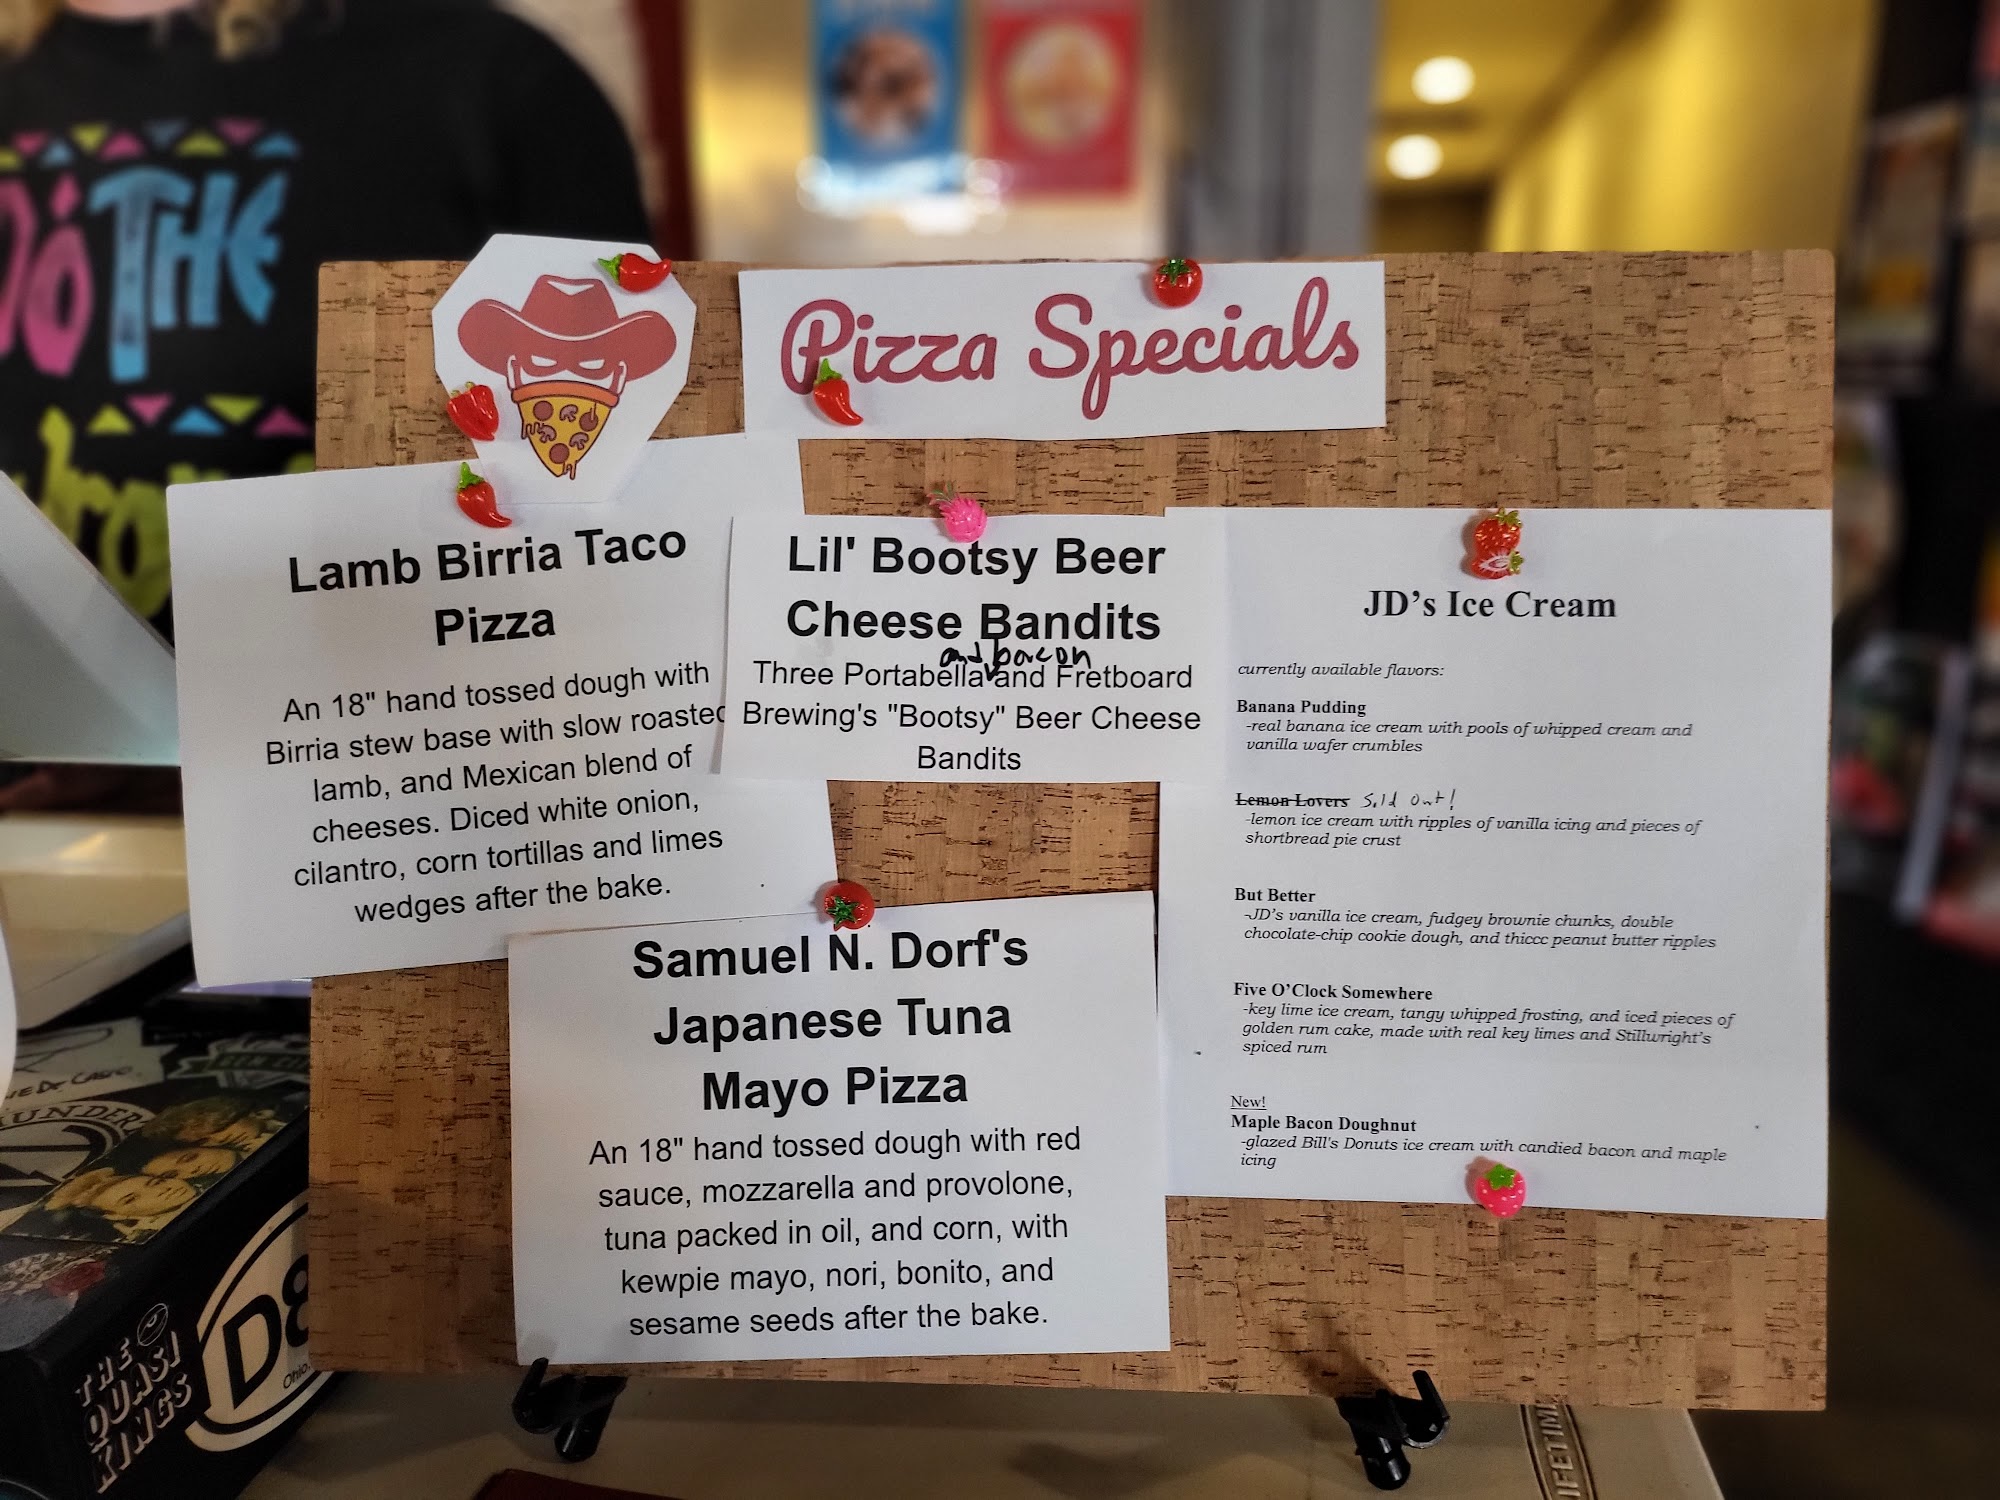 THE
Pizza Specials
Lamb Birria Taco
Pizza
An 18" hand tossed dough with
Birria stew base with slow roasted
lamb, and Mexican blend of
cheeses. Diced white onion,
cilantro, corn tortillas and limes
wedges after the bake.
Lil' Bootsy Beer
Cheese Bandits
and bacon
Three Portabella and Fretboard
Brewing's "Bootsy" Beer Cheese
Bandits
Samuel N. Dorf's
Japanese Tuna
Mayo Pizza
An 18" hand tossed dough with red
sauce, mozzarella and provolone,
tuna packed in oil, and corn, with
kewpie mayo, nori, bonito, and
sesame seeds after the bake.
JD's Ice Cream
currently available flavors:
Banana Pudding
-real banana ice cream with pools of whipped cream and
vanilla wafer crumbles
Lemon Lovers Sold out!
-lemon ice cream with ripples of vanilla icing and pieces of
shortbread pie crust
But Better
-JD's vanilla ice cream, fudgey brownie chunks, double
chocolate-chip cookie dough, and thiccc peanut butter ripples
Five O'Clock Somewhere
-key lime ice cream, tangy whipped frosting, and iced pieces of
golden rum cake, made with real key limes and Stillwright's
spiced rum
New!
Maple Bacon Doughnut
-glazed Bill's Donuts ice cream with candied bacon and maple
icing
THE
QUASI
KINGS
D8
Ohio
LIFETIME